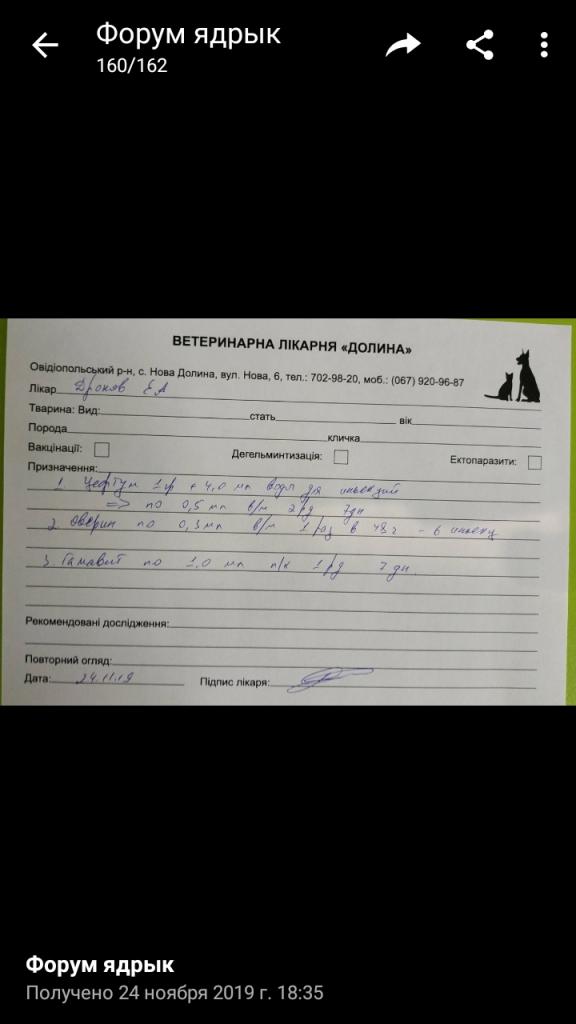 Форум ядрык
160/162
ВЕТЕРИНАРНА ЛІКАРНЯ «ДОЛИНА»
Овідіопольський р-н, с. Нова Долина, вул. Нова, 6, тел.: 702-98-20, моб.: (067) 920-96-87
Лікар
Тварина: Вид: стать вік
Порода кличка
Вакцинації: Дегельминтизація: Ектопаразити:
Призначення:
1. 1 гр + 4,0 мл воды для инъекций
=> по 0,5 мл в/м 2 р/д 7 дн
2. по 0,3 мл в/м 1 раз в 48 ч - 6 инъекц
3. Гамавит по 1,0 мл п/к 1 р/д 7 дн.
Рекомендовані дослідження:
Повторний огляд:
Дата: 24.11.19 Підпис лікаря:
Форум ядрык
Получено 24 ноября 2019 г. 18:35